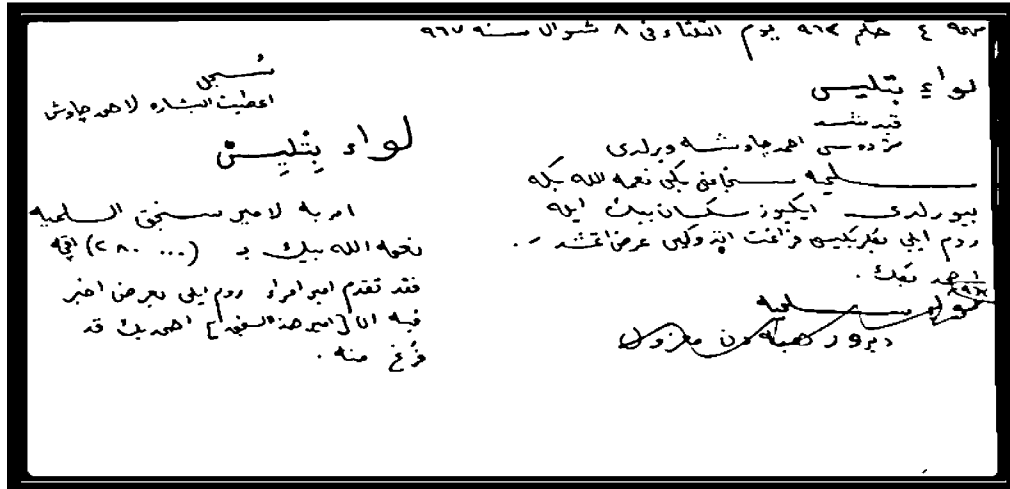 ٤ حكم ٩٦٤ يوم الثلثاء فى ٨ شوال سنه ٩٦٧
لواءِ بتليس
قيد شد
مژده سى احمد چاوشه ويرلدى
سلميه سنجاغى بكى نعمه الله بكه
بيورلدى ايكيوز سكسان بيك ايله
روم ايلى بكلربكيسى فراغت ايتدوكين عرض اتمشد.
احمد بك.
لواء سلميه
دن معزول
سُجل
اعطيت البشاره لاحمد چاوش
لواء بِتليس
امر به لامير سنجق السلميه
نعمه الله بيك بـ (٢٨٠٠٠٠) اقچه
فقد تقدم امير امراء روم ايلى بعرض اخبر
فيه ان [امير هذا السنجق] احمد بك قد
فرغ منه.